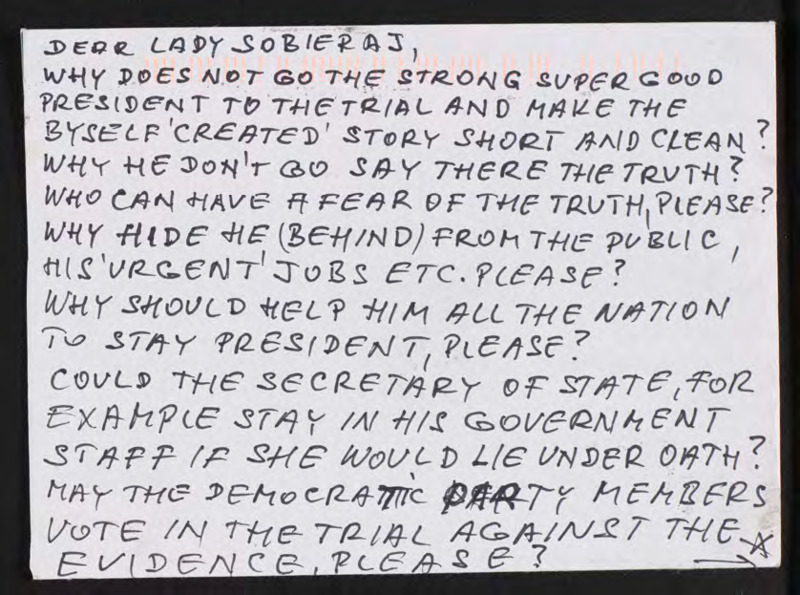 DEAR LADY SOBIERAJ,
WHY DOES NOT GO THE STRONG SUPER GOOD
PRESIDENT TO THE TRIAL AND MAKE THE
BYSELF 'CREATED' STORY SHORT AND CLEAN?
WHY HE DON'T GO SAY THERE THE TRUTH?
WHO CAN HAVE A FEAR OF THE TRUTH, PLEASE?
WHY HIDE HE (BEHIND) FROM THE PUBLIC,
HIS 'URGENT' JOBS ETC. PLEASE?
WHY SHOULD HELP HIM ALL THE NATION
TO STAY PRESIDENT, PLEASE?
COULD THE SECRETARY OF STATE, FOR
EXAMPLE STAY IN HIS GOVERNMENT
STAFF IF SHE WOULD LIE UNDER OATH?
MAY THE DEMOCRATIC PARTY MEMBERS
VOTE IN THE TRIAL AGAINST THE
EVIDENCE, PLEASE?